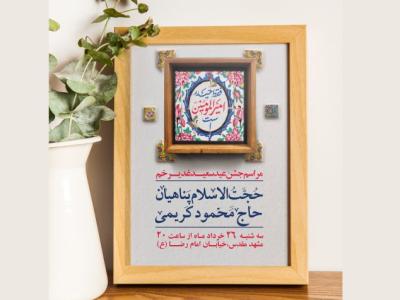 فقط حیدر
امیرالمومنین
است
مراسم جشن عید سعید غدیر خم
حجت‌الاسلام پناهیان
حاج محمود کریمی
سه شنبه ۲۶ خرداد ماه از ساعت ۲۰
مشهد مقدس، خیابان امام رضا (ع)